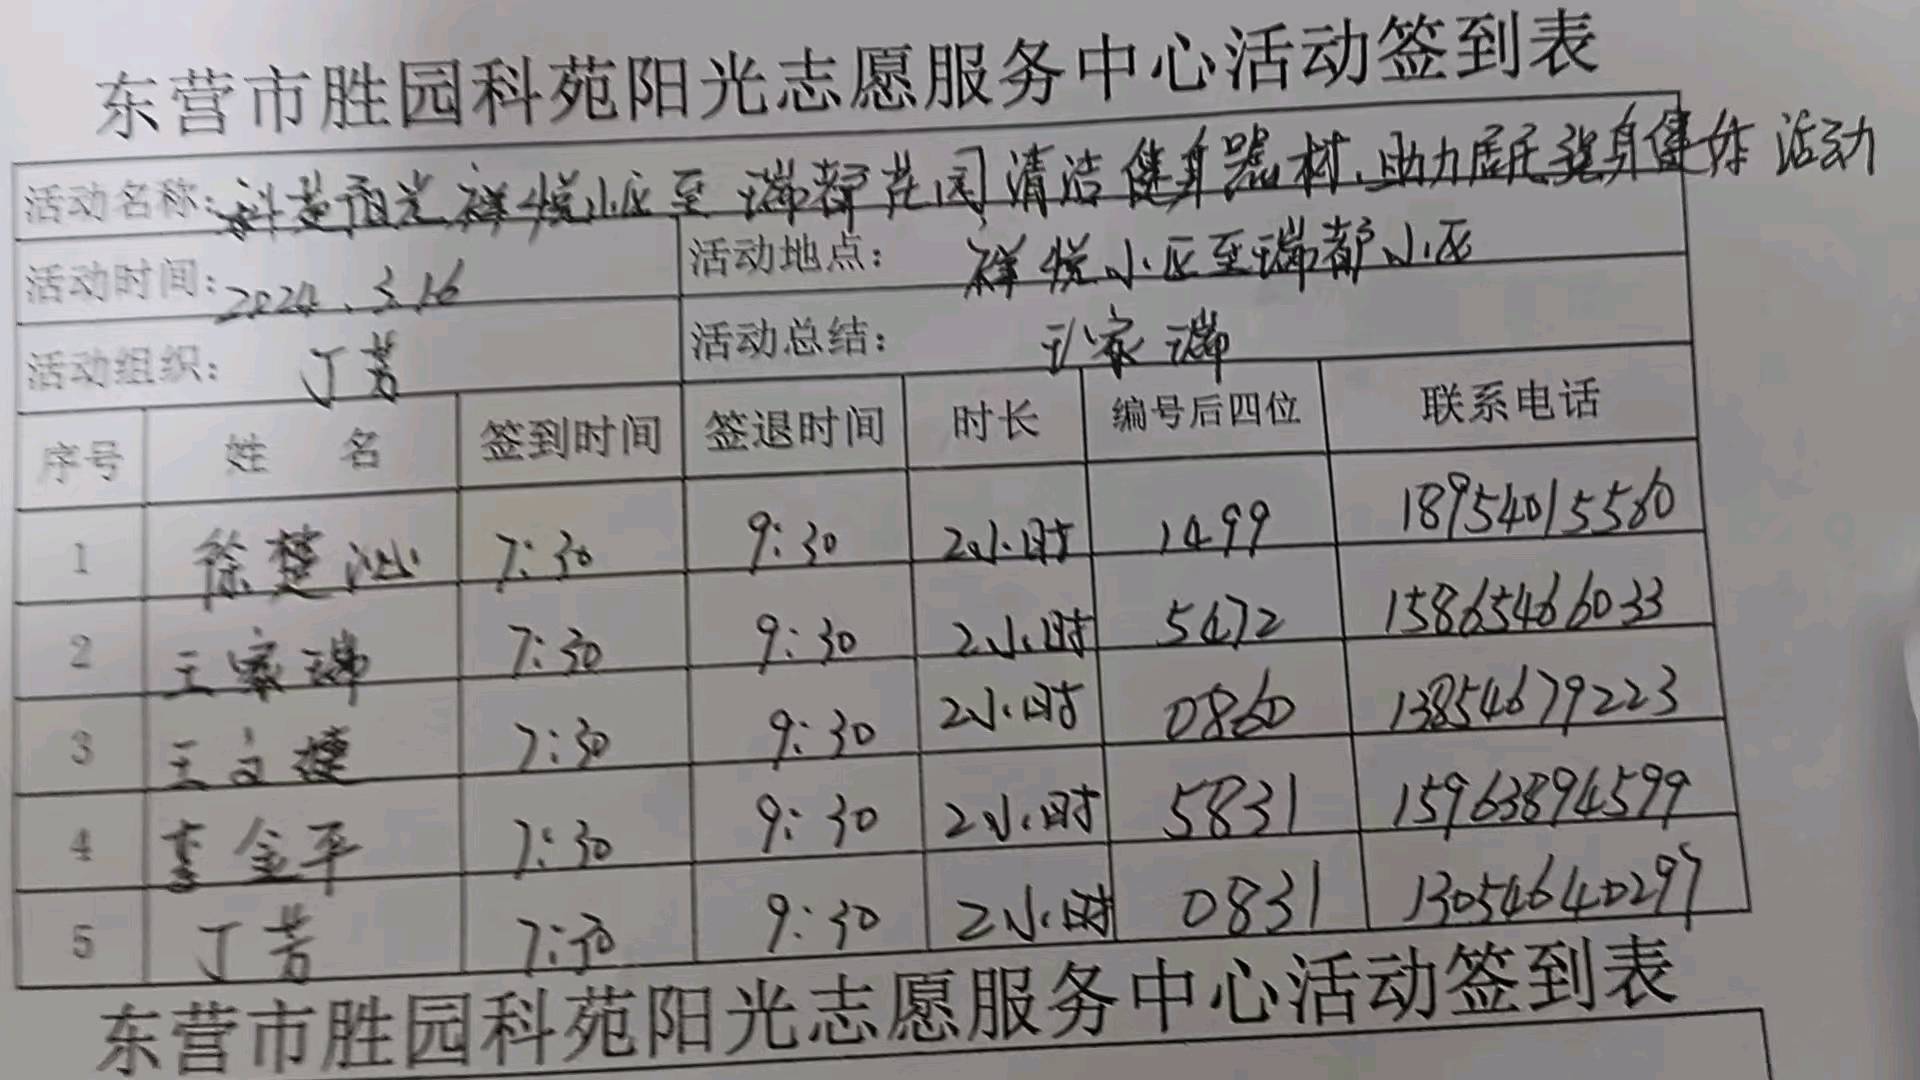 东营市胜园科苑阳光志愿服务中心活动签到表
活动名称: 科苑阳光祥悦小区至瑞都花园清洁健身器材、助力居民强身健体活动
活动时间: 2024.3.16 活动地点: 祥悦小区至瑞都小区
活动组织: 丁芳 活动总结: 王家瑞
序号 姓 名 签到时间 签退时间 时长 编号后四位 联系电话
1 徐楚 7:30 9:30 2小时 1499 18954015560
2 王家瑞 7:30 9:30 2小时 5472 15865466033
3 王文捷 7:30 9:30 2小时 0860 13854679223
4 李金平 7:30 9:30 2小时 5831 15963894599
5 丁芳 7:30 9:30 2小时 0831 13054640297
东营市胜园科苑阳光志愿服务中心活动签到表